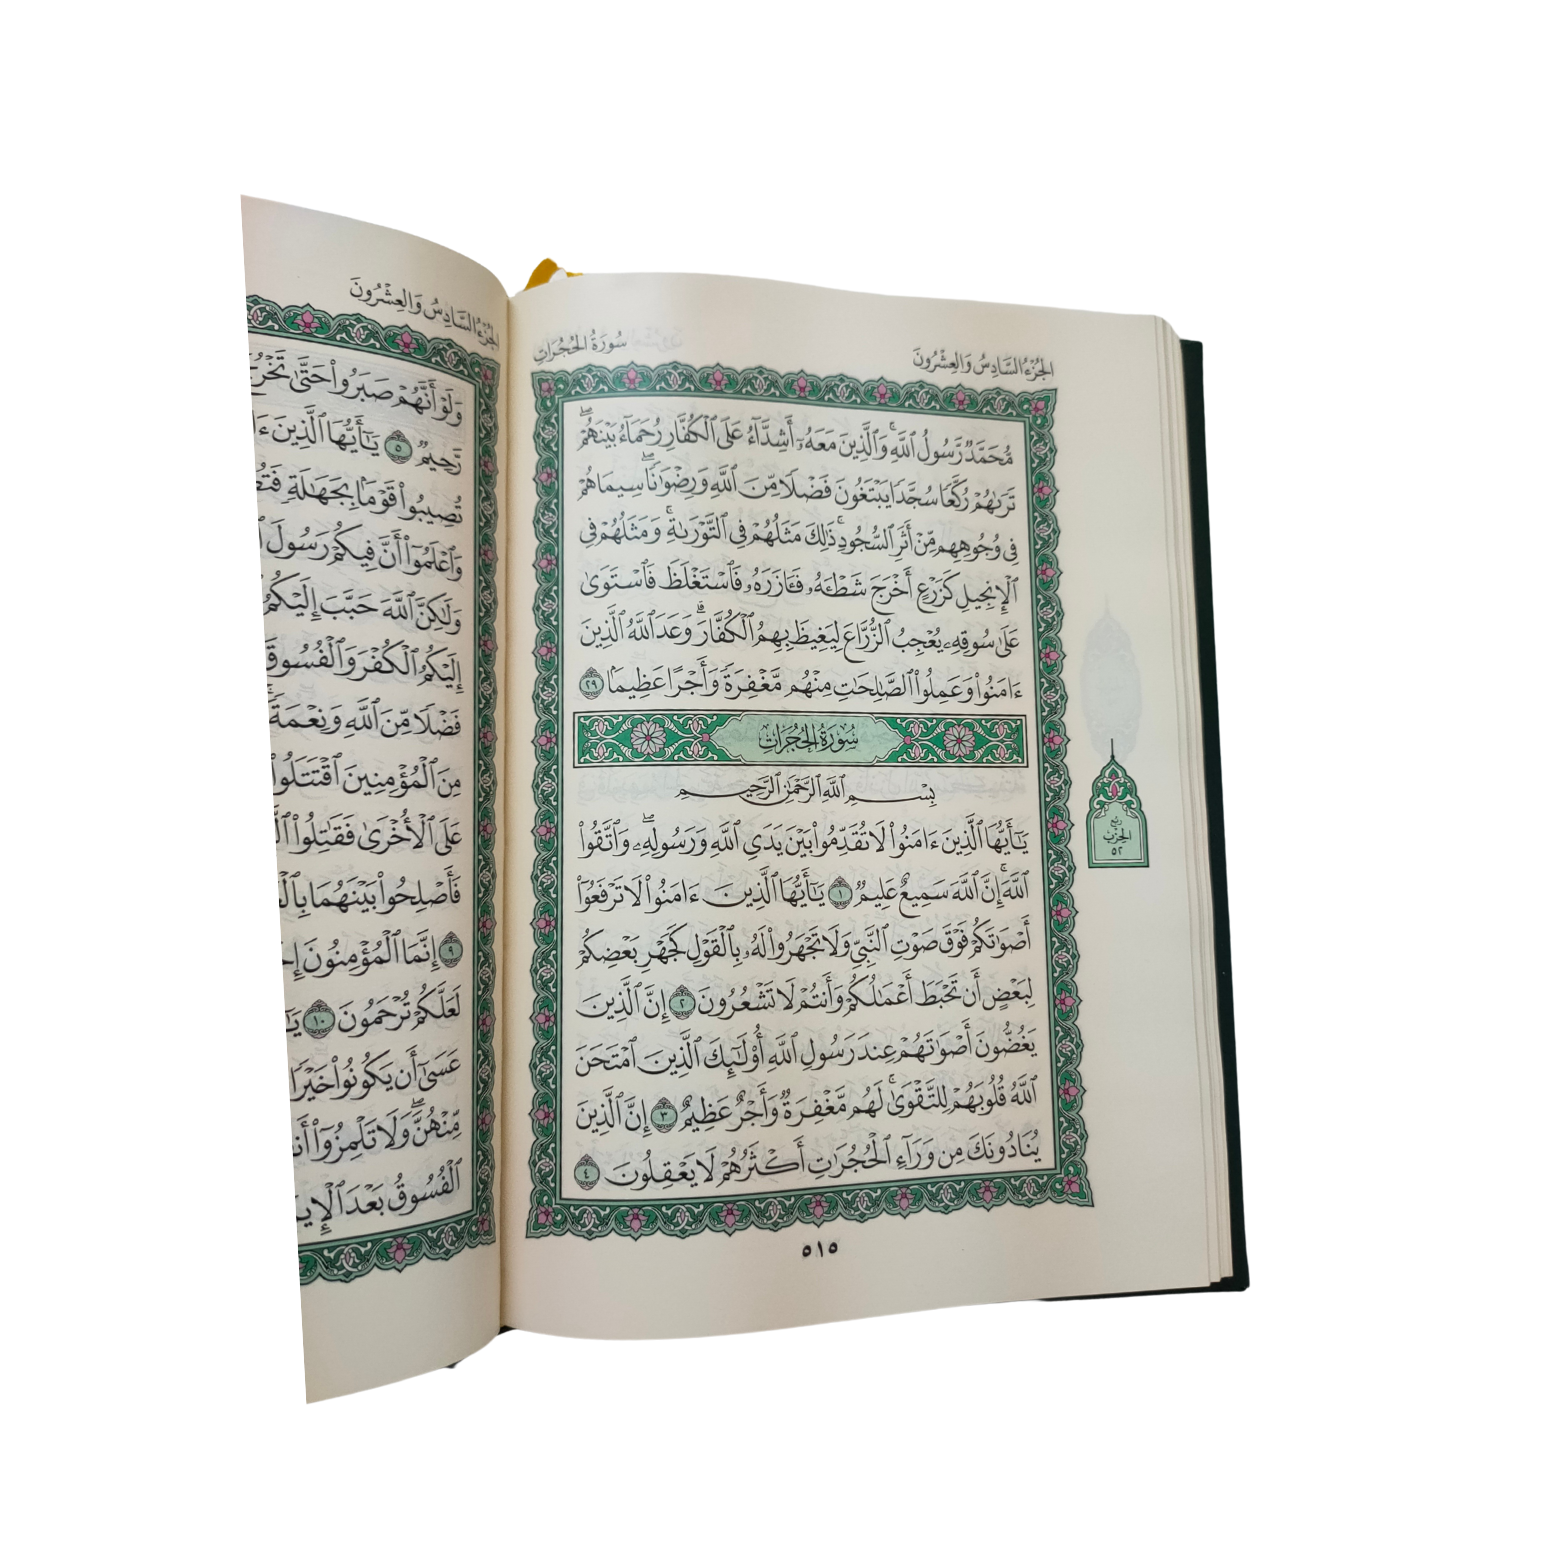 الجُزْءُ السَّادِسُ وَالعِشْرُونَ
سُورَةُ الحُجُرَاتِ
مُّحَمَّدٌ رَّسُولُ ٱللَّهِۚ وَٱلَّذِينَ مَعَهُۥٓ أَشِدَّآءُ عَلَى ٱلْكُفَّارِ رُحَمَآءُ بَيْنَهُمْۖ
تَرَىٰهُمْ رُكَّعًا سُجَّدًا يَبْتَغُونَ فَضْلًا مِّنَ ٱللَّهِ وَرِضْوَٰنًاۖ سِيمَاهُمْ
فِى وُجُوهِهِم مِّنْ أَثَرِ ٱلسُّجُودِۚ ذَٰلِكَ مَثَلُهُمْ فِى ٱلتَّوْرَىٰةِۚ وَمَثَلُهُمْ فِى
ٱلْإِنجِيلِ كَزَرْعٍ أَخْرَجَ شَطْـَٔهُۥ فَـَٔازَرَهُۥ فَٱسْتَغْلَظَ فَٱسْتَوَىٰ
عَلَىٰ سُوقِهِۦ يُعْجِبُ ٱلزُّرَّاعَ لِيَغِيظَ بِهِمُ ٱلْكُفَّارَۗ وَعَدَ ٱللَّهُ ٱلَّذِينَ
ءَامَنُوا۟ وَعَمِلُوا۟ ٱلصَّـٰلِحَـٰتِ مِنْهُم مَّغْفِرَةً وَأَجْرًا عَظِيمًۢا ٢٩
سُورَةُ الحُجُرَاتِ
بِسْمِ ٱللَّهِ ٱلرَّحْمَـٰنِ ٱلرَّحِيمِ
يَـٰٓأَيُّهَا ٱلَّذِينَ ءَامَنُوا۟ لَا تُقَدِّمُوا۟ بَيْنَ يَدَىِ ٱللَّهِ وَرَسُولِهِۦۖ وَٱتَّقُوا۟
ٱللَّهَۚ إِنَّ ٱللَّهَ سَمِيعٌ عَلِيمٌ ١ يَـٰٓأَيُّهَا ٱلَّذِينَ ءَامَنُوا۟ لَا تَرْفَعُوٓا۟
أَصْوَٰتَكُمْ فَوْقَ صَوْتِ ٱلنَّبِىِّ وَلَا تَجْهَرُوا۟ لَهُۥ بِٱلْقَوْلِ كَجَهْرِ بَعْضِكُمْ
لِبَعْضٍ أَن تَحْبَطَ أَعْمَـٰلُكُمْ وَأَنتُمْ لَا تَشْعُرُونَ ٢ إِنَّ ٱلَّذِينَ
يَغُضُّونَ أَصْوَٰتَهُمْ عِندَ رَسُولِ ٱللَّهِ أُو۟لَـٰٓئِكَ ٱلَّذِينَ ٱمْتَحَنَ
ٱللَّهُ قُلُوبَهُمْ لِلتَّقْوَىٰۚ لَهُم مَّغْفِرَةٌ وَأَجْرٌ عَظِيمٌ ٣ إِنَّ ٱلَّذِينَ
يُنَادُونَكَ مِن وَرَآءِ ٱلْحُجُرَٰتِ أَكْثَرُهُمْ لَا يَعْقِلُونَ ٤
رُبْعُ
الحِزْب
٥٢
٥١٥
الجُزْءُ السَّادِسُ وَالعِشْرُونَ
وَلَوْ أَنَّهُمْ صَبَرُوا۟ حَتَّىٰ
رَّحِيمٌ ٥ يَـٰٓأَيُّهَا ٱلَّذِينَ
تُصِيبُوا۟ قَوْمًۢا بِجَهَـٰلَةٍ
وَٱعْلَمُوٓا۟ أَنَّ فِيكُمْ رَسُولَ
وَلَـٰكِنَّ ٱللَّهَ حَبَّبَ إِلَيْكُمُ
إِلَيْكُمُ ٱلْكُفْرَ وَٱلْفُسُوقَ
فَضْلًا مِّنَ ٱللَّهِ وَنِعْمَةً
مِنَ ٱلْمُؤْمِنِينَ ٱقْتَتَلُوا۟
عَلَى ٱلْأُخْرَىٰ فَقَـٰتِلُوا۟
فَأَصْلِحُوا۟ بَيْنَهُمَا
٩ إِنَّمَا ٱلْمُؤْمِنُونَ
لَعَلَّكُمْ تُرْحَمُونَ ١٠
عَسَىٰٓ أَن يَكُونُوا۟ خَيْرًا
مِّنْهُنَّۖ وَلَا تَلْمِزُوٓا۟
ٱلْفُسُوقُ بَعْدَ